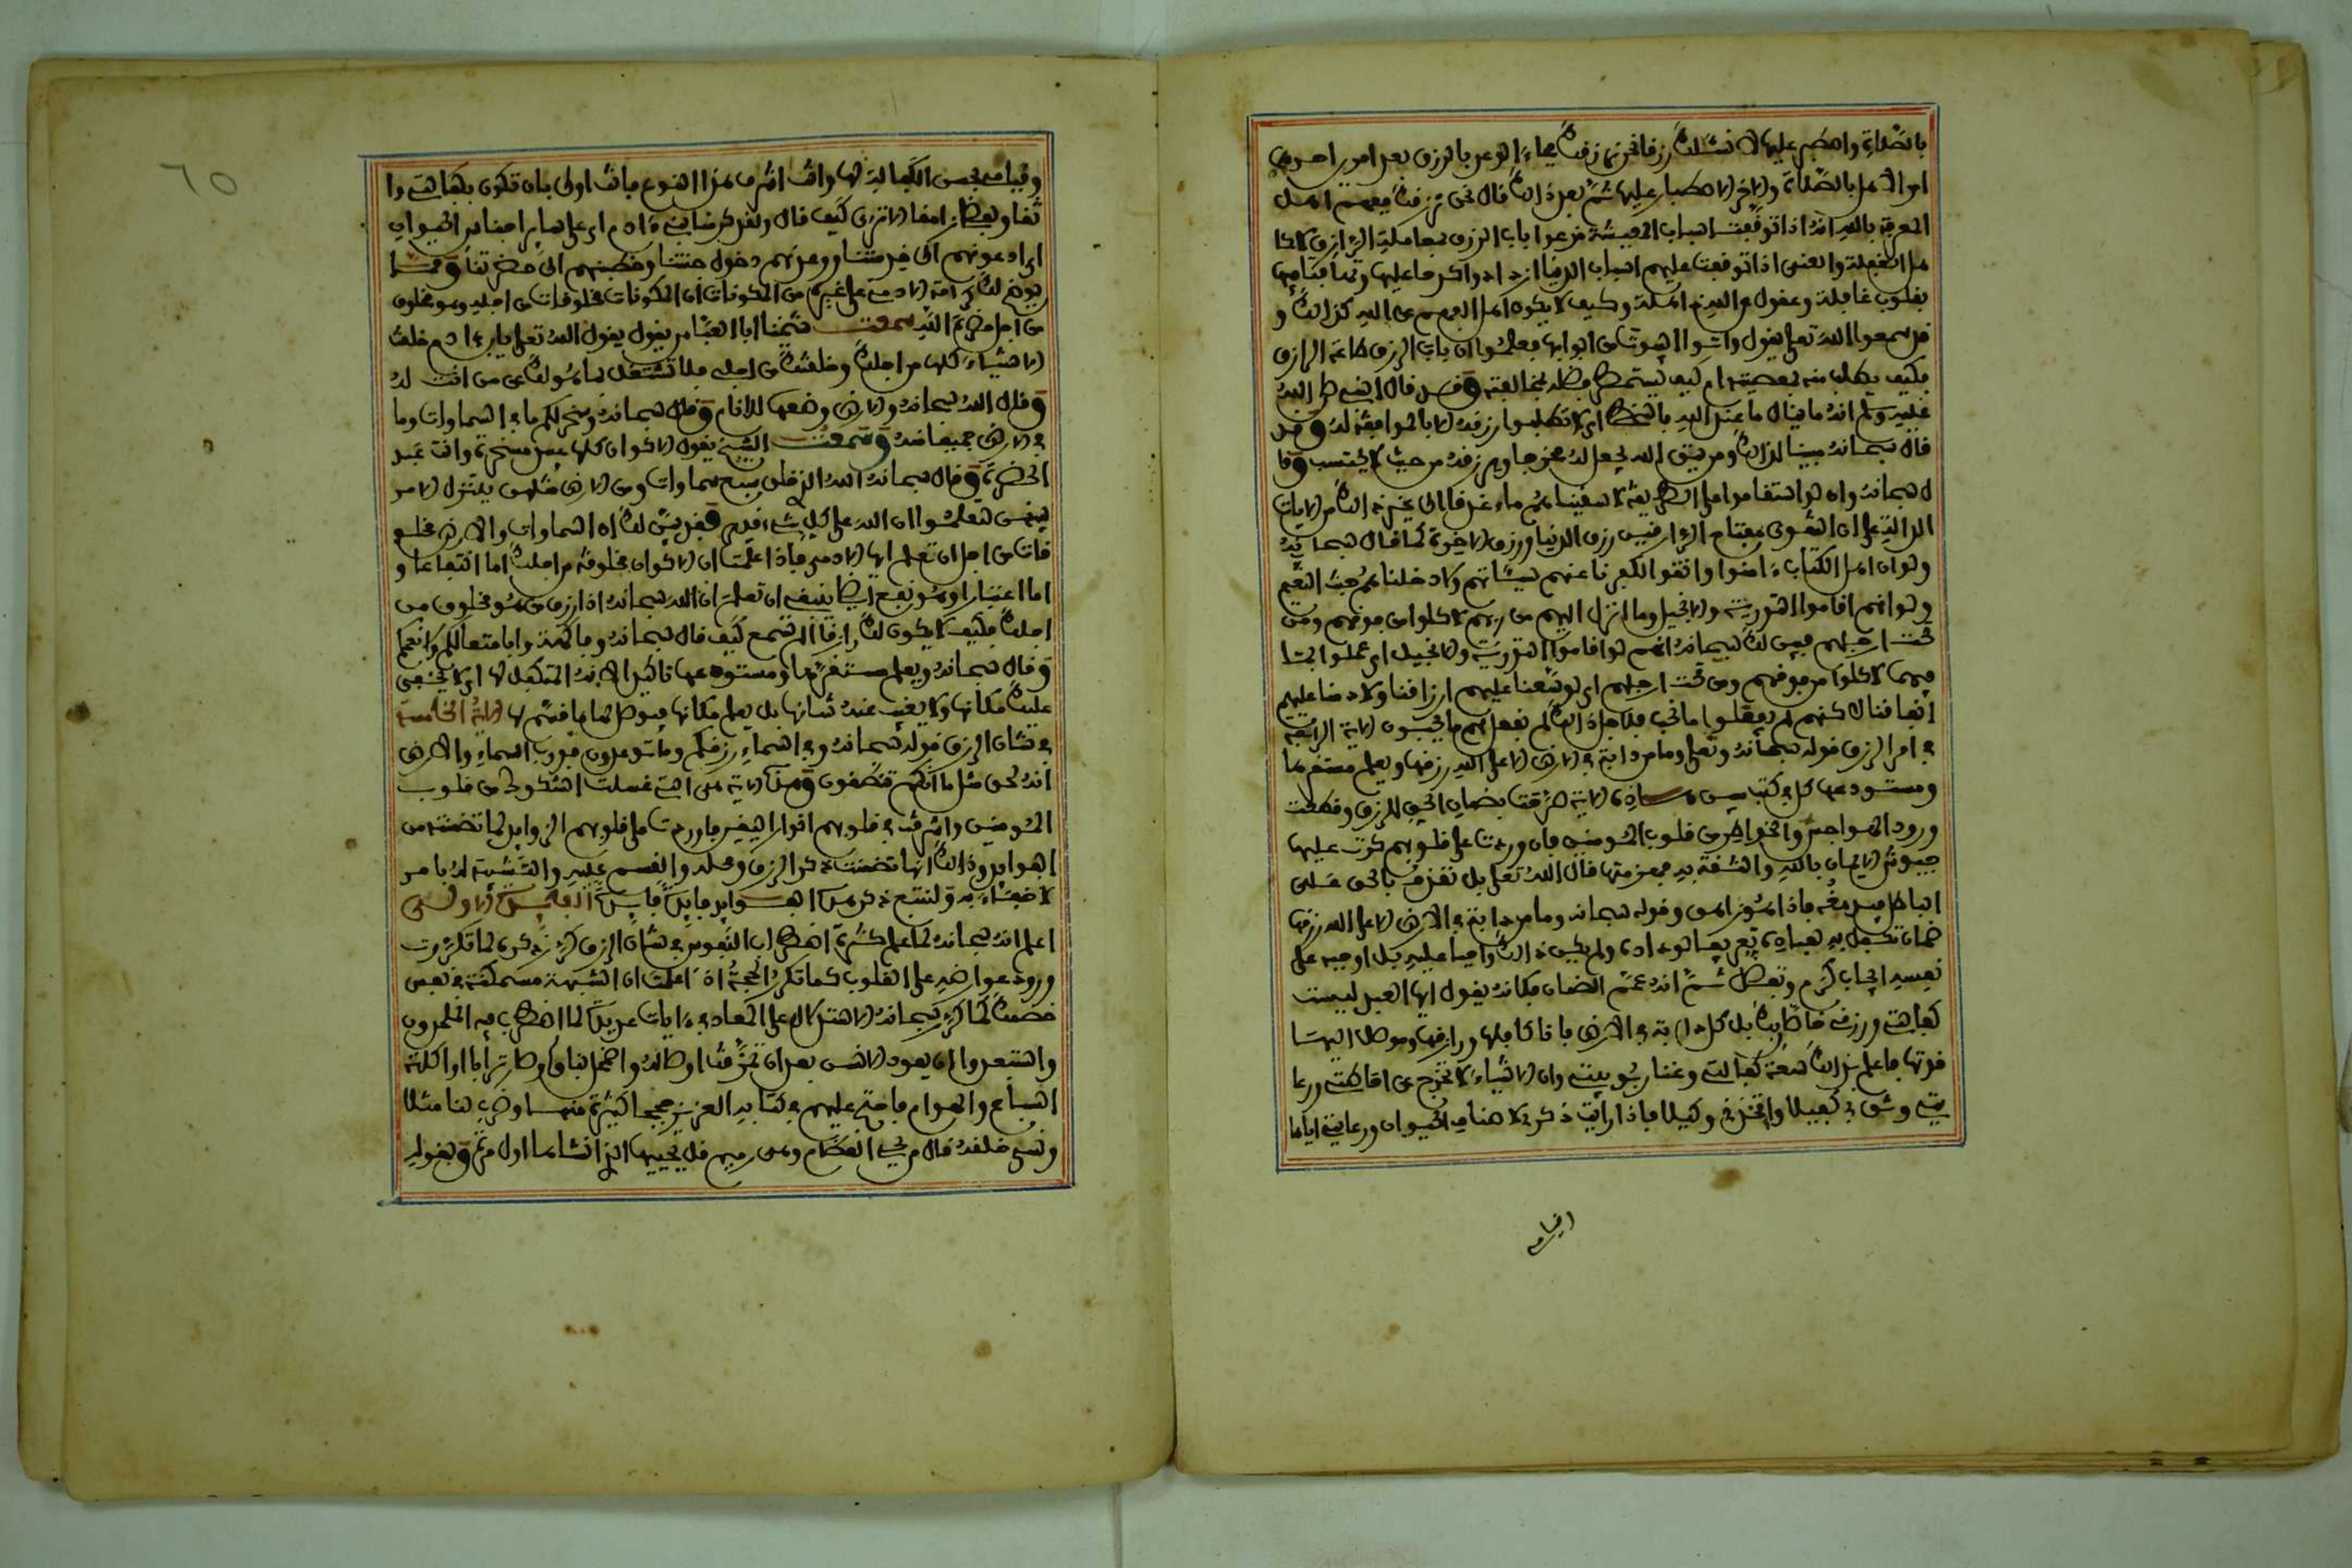 بالصلاة واصطبر عليها لا نسئلك رزقا نحن نرزقك فجاء الوعد بالرزق بعد امرين احدهما
امر الاهل بالصلاة والاخر الاصطبار عليها ثم بعد ذلك قال نحن نرزقك ففهم اهل
المعرفة بالله انه اذا توقفت اسباب المعيشة قرعوا باب الرزق بمعاملة الرازق لا كا
هل الغفلة والعمى اذا توقفت عليهم اسباب الدنيا ازدادوا كدحا عليها وتهافتا فيها
بقلوب غافلة وعقول عن الله ذاهلة وكيف لا يكون اهل الفهم عن الله كذلك و
قد سمعوا الله تعلى يقول واتوا البيوت من ابوابها فعلموا ان باب الرزق طاعة الرازق
فكيف يطلب منه بمعصيته ام كيف يستمطر فضله بمخالفته وقد قال النبي صلى الله
عليه وسلم انه ما ينال ما عند الله بالسخط اي لا تطلبوا رزقه الا بالموافقة له وقد
قال سبحانه مبينا لذلك ومن يتق الله يجعل له مخرجا ويرزقه من حيث لا يحتسب وقا
ل سبحانه وان لو استقاموا على الطريقة لاسقيناهم ماء غدقا الى غير ذلك من الايات
الدالة على ان التقوى مفتاح الرزقين رزق الدنيا ورزق الاخرة كما قال سبحانه
ولو ان اهل الكتاب ءامنوا واتقوا لكفرنا عنهم سيئاتهم ولادخلناهم جنت النعيم
ولو انهم اقاموا التورية والانجيل وما انزل اليهم من ربهم لاكلوا من فوقهم ومن
تحت ارجلهم فبين لك سبحانه انهم لو اقاموا التورية والانجيل اي عملوا بما
فيهما لاكلوا من فوقهم ومن تحت ارجلهم اي لوسعنا عليهم ارزاقنا ولادمنا عليهم
انفاقنا لاكنهم لم يفعلوا ما نحب فلاجل ذلك لم نفعل بهم ما يحبون الاية الرابعة
في امر الرزق قوله سبحانه وتعلى وما من دابة في الارض الا على الله رزقها ويعلم مستقرها
ومستودعها كل في كتب مبين هذه الاية صرحت بضمان الحق للرزق وقطعت
ورود الهواجس والخواطر من قلوب المومنين فان وردت على قلوبهم كرت عليها
جيوش الايمان بالله والثقة به فهزمتها قال الله تعلى بل نقذف بالحق على
الباطل فيدمغه فاذا هو زاهق وقوله سبحانه وما من دابة في الارض الا على الله رزقها
ضمان تكفل به لعباده تعريفا لوداده ولم يكن ذلك واجبا عليه بل اوجبه على
نفسه ايجاب كرم وتفضل ثم انه عمم الضمان فكانه يقول ايها العبد ليست
كفالتي ورزقي خاصا بك بل كل دابة في الارض فانا كافلها ورازقها وموصل اليها
قوتها فاعلم بذلك سعة كفالتي وغنا ربوبيتي وان الاشياء لا تخرج عن احاطتي ورعا
يتي وثق بي كفيلا واتخذني وكيلا فاذا رأيت ذكري لاصناف الحيوان ورعايتي اياها
وقيامي بحسن الكفالة لها وانت اشرف هذا النوع فانت اولى بان تكون بكفالتي وا
ثقا ولفضلي رامقا الا ترى كيف قال ولقد كرمنا بني ءادم اي على ساير اجناس الحيوان
اي ادعوتهم الى خدمتنا ووعدتهم دخول جنتنا وخطبتهم الى حضرتنا ومما
يوضح لك كرامة الادمي على غيره من المكونات ان المكونات مخلوقات من اجله وهو مخلوق
من اجل حضرة الله سمعت شيخنا ابا العباس يقول يقول الله تعلى يابن ءادم خلقت
الاشياء كلها من اجلك وخلقتك من اجلي فلا تشتغل بما هو لك عن من انت له
وقال الله سبحانه والارض وضعها للانام وقال سبحانه وسخر لكم ما في السماوات وما
في الارض جميعا منه وسمعت الشيخ يقول الاكوان كلها عبيد مسخرة وانت عبد
الحضرة وقال سبحانه الله الذي خلق سبع سماوات ومن الارض مثلهن يتنزل الامر
بينهن لتعلموا ان الله على كل شيء قدير فقد بين لك ان السماوات والارض مخلو
قات من اجل ان تعلم ايها الادمي فاذا علمت ان الاكوان مخلوقة من اجلك اما انتفاعا و
اما اعتبارا وهو نفع ايضا فينبغي ان تعلم ان الله سبحانه اذا رزق من هو مخلوق من
اجلك فكيف لا يكون لك رازقا الم تسمع كيف قال سبحانه وفاكهة وابا متعا لكم ولانعمكم
وقال سبحانه ويعلم مستقرها ومستودعها تاكيد لامر المتكفل لها اي لا يخفى
عليه مكانها ولا يغيب عنه شانها بل يعلم مكانها فيوصل لها ما قسم لها الاية الخامسة
في شان الرزق قوله سبحانه وفي السماء رزقكم وما توعدون فورب السماء والارض
انه لحق مثل ما انكم تنطقون وهذه الاية هي التي غسلت الشكوك من قلوب
المومنين واشرقت في قلوبهم انوار اليقين فاوردت على قلوبهم الزوايد لما تضمنته من
الفوايد وذلك انها تضمنت ذكر الرزق ومحله والقسم عليه والتشبيه له بامر
لا خفاء به ولنتبع ذكر هذه الفوايد فايدة فايدة الفايدة الاولى
اعلم انه سبحانه لما علم كثرة اضطراب النفوس في شان الرزق كرر ذكره لما تكررت
ورود عوارضه على القلوب كما تكرر الحجة اذا علمت ان الشبهة متمكنة في نفس
خصمك كما كرر سبحانه الاستدلال على المعاد في ءايات عديدة لما اضطرب فيه الملحدون
واستبعدوا ان يعود الانس بعد ان تمزقت اوصاله واضمحل بناؤه وصار ترابا او اكلته
السباع والهوام فاحتج عليهم في كتابه العزيز حججا كثيرة منها وضرب لنا مثلا
ونسي خلقه قال من يحي العظام وهي رميم قل يحييها الذي انشأها اول مرة وبقوله
اقيامي
٦٥